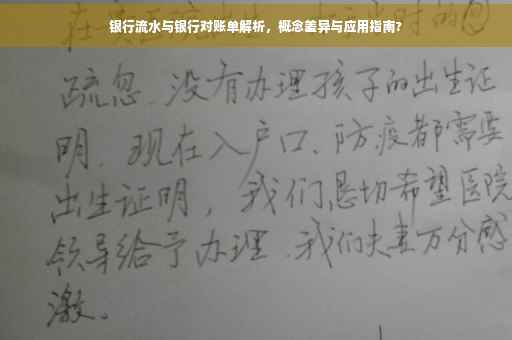 银行流水与银行对账单解析，概念差异与应用指南?
疏忽、没有办理孩子的出生证
明、现在入户口、防疫都需要
出生证明，我们恳切希望医院
领导给予办理、我们夫妻万分感
激。